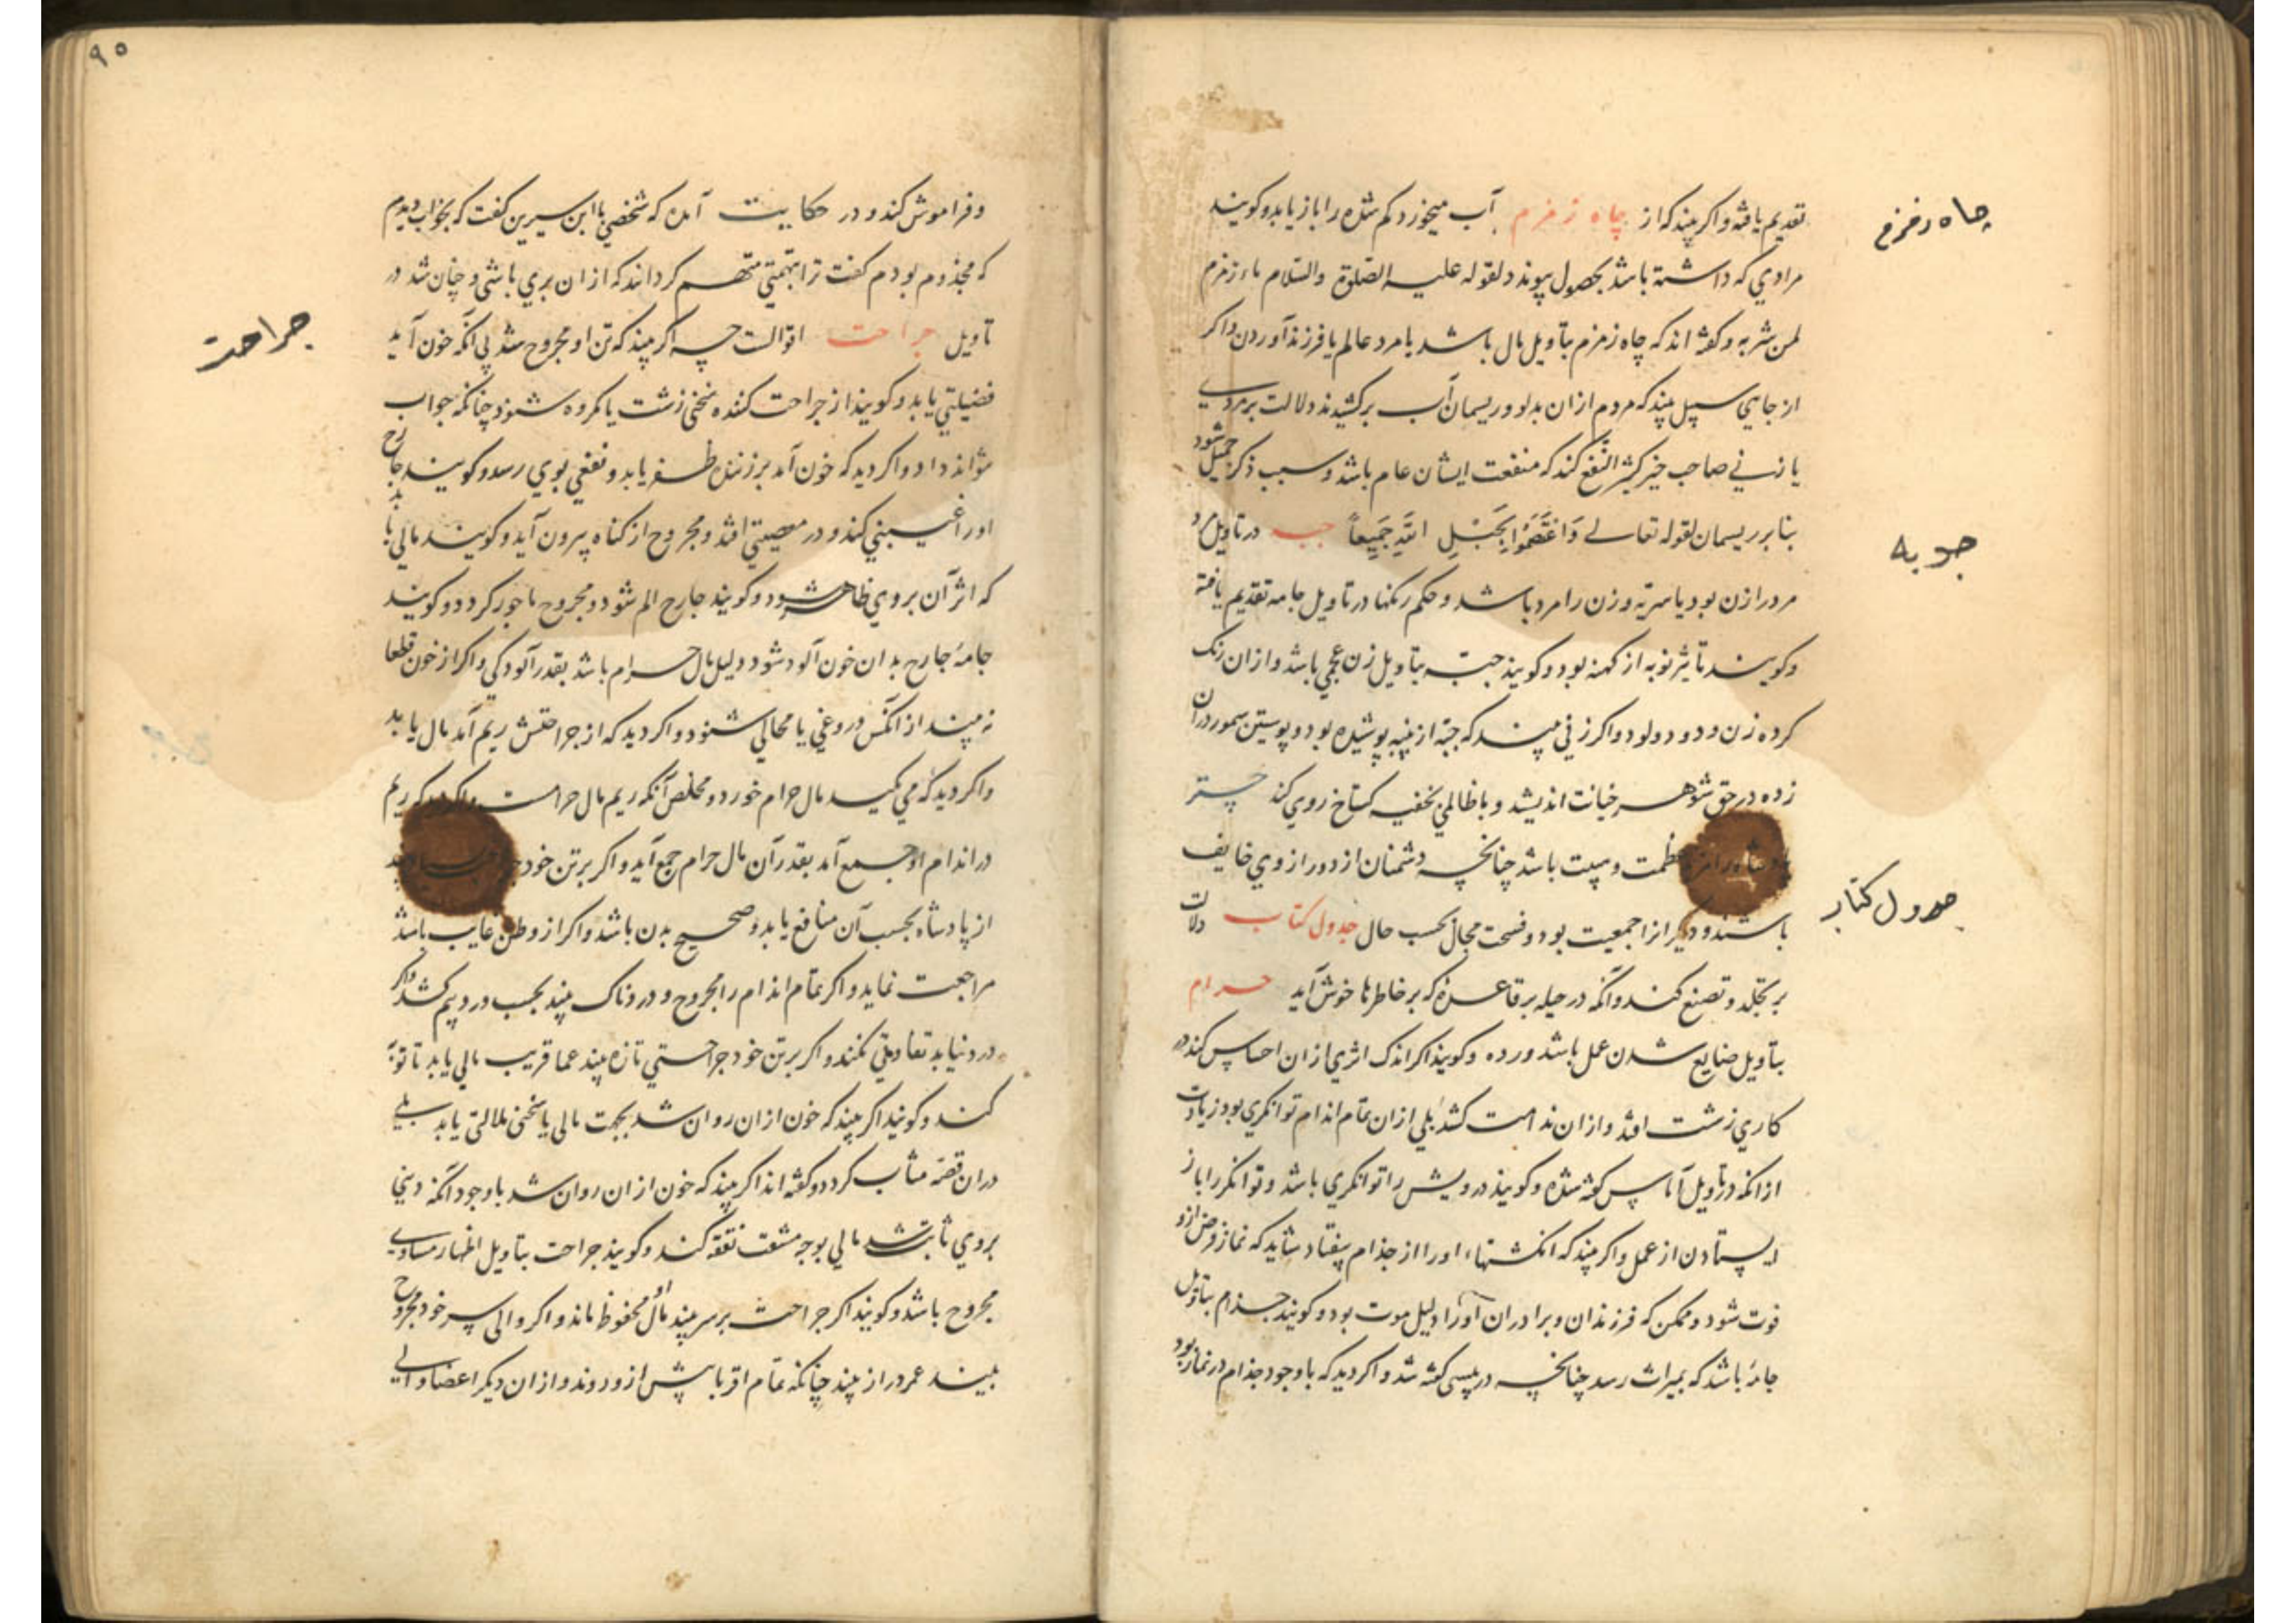 تقدیم یافته و اکر بیند که از چاه زمزم آب میخورد کم شده را باز یابد و کویند
چاه زمزم
مرادی که داشته باشد بحصول پیوندد لقوله علیه الصلوة والسلام ماء زمزم
لمن شربه و کفته اند که چاه زمزم بتاویل مال باشد یا مرد عالم یا فرزند آوردن و اکر
از جایی سبیل بیند که مردم ازان بدلو و ریسمان آب برکشیدند دلالت بر مردی
یا زنی صاحب خیر کثیر النفع کند که منفعت ایشان عام باشد و سبب ذکر جمیل شود
بنا بر ریسمان لقوله تعالی وَاعْتَصِمُوا بِحَبْلِ اللَّهِ جَمِيعاً جبه در تاویل
جوبه
مرد را زن بود یا سریه و زن را مرد باشد و حکم رنکها در تاویل جامه تقدیم یافته
و کویند تاثیر نو به از کهنه بود و کویند جبه بتاویل زن عجمی باشد و ازان رنک
کرده زن ودود ولود و اکر زنی بیند که جبه از پنبه پوشیده بود و پوستین سمور دران
زده در حق شوهر خیانت اندیشد و با ظالمی بخفیه کستاخ روی کند چتر
پادشاه را مزید عظمت و هیبت باشد چنانچه دشمنان از دور از وی خایف
باشند و دیکر انرا جمعیت بود و فسحت مجال بحسب حال جدول کتاب دلالت
جدول کتاب
بر تجلد و تصنع کند و آنکه در حیله بر قاعده که بر خاطرها خوش آید جذام
بتاویل ضایع شدن عمل باشد و رده و کویند اکر اندک اثری ازان احساس کند در
کاری زشت افتد و ازان ندامت کشد بلی ازان تمام اندام توانکری بود زیادت
از آنکه در تاویل آماس کفته شده و کویند درویش را توانکری باشد و توانکر را باز
ایستادن از عمل و اکر بیند که انکشتهاء او را از جذام بیفتاد شاید که نماز فرض ازو
فوت شود و ممکن که فرزندان و برادران او را دلیل موت بود و کویند جذام بتاویل
جامه باشد که بمیراث رسد چنانچه در پیسی کفته شد و اکر دید که با وجود جذام در نماز بود
۹۰
و فراموش کند و در حکایت آمده که شخصی با ابن سیرین کفت که بخواب دیدم
که مجذوم بودم کفت ترا بتهمتی متهم کردانند که ازان بری باشی و چنان شد در
تاویل جراحت اقوالست چه اکر بیند که تن او مجروح شد بی آنکه خون آید
جراحت
فضیلتی یابد و کویند از جراحت کننده سخنی زشت یا مکروه شنود چنانکه جواب
نتواند داد و اکر دید که خون آمد بر زننده ظفر یابد و نفعی بوی رسد و کویند جارح
او را غیبتی کند و در معصیتی افتد و مجروح از کناه بیرون آید و کویند مالی یابد
که اثر آن بر وی ظاهر شود و کویند جارح الم شود و مجروح ماجور کردد و کویند
جامۀ جارح بدان خون آلود شود دلیل مال حرام باشد بقدر آلودکی و اکر از خون قطعا
نبیند از انکس دروغی یا محالی شنود و اکر دید که از جراحتش ریم آمد مال یابد
و اکر دید که می مکید مال حرام خورد و مخلص آنکه ریم مال حرامست و اکر دید که ریم
در اندام او جمع آمد بقدر آن مال حرام جمع آید و اکر بر تن خود
از پادشاه بحسب آن منافع یابد و صحیح بدن باشد و اکر از وطن غایب باشد
مراجعت نماید و اکر تمام اندام را مجروح و دردناک بیند بحسب درد بیم کشد و اکر
درد نیابد تفاوتی نکند و اکر بر تن خود جراحتی تازه بیند عما قریب مالی یابد تا توبه
کند و کویند اکر بیند که خون ازان روان شد بجهت مالی یا سخنی ملالتی یابد بلی
دران قصه مثاب کردد و کفته اند اکر بیند که خون ازان روان شد با وجود آنکه دینی
بر وی ثابت شد مالی بوجه مشقت نفقه کند و کویند جراحت بتاویل اظهار مساوی
مجروح باشد و کویند اکر جراحت بر سر بیند مال او محفوظ ماند و اکر والی سر خود مجروح
بیند عمر دراز بیند چنانکه تمام اقربا پیش ازو روند و ازان دیکر اعضا والی